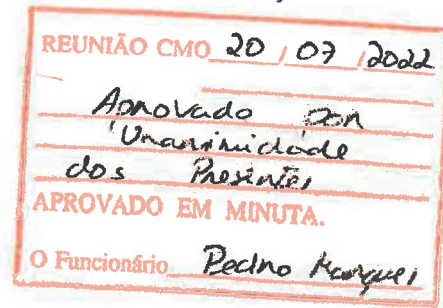 REUNIÃO CMO 20 / 07 / 2022
Aprovado por
Unanimidade
dos Presentes
APROVADO EM MINUTA.
O Funcionário Pedro Marques